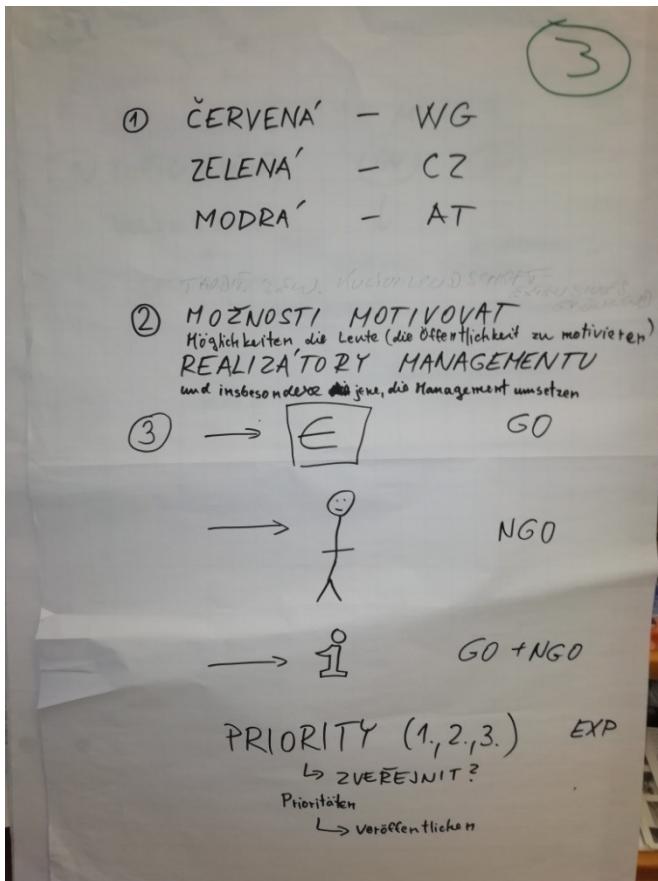 3
① ČERVENÁ – WG
ZELENÁ – CZ
MODRÁ – AT
② MOŽNOSTI MOTIVOVAT
Möglichkeiten die Leute (die Öffentlichkeit zu motivieren)
REALIZÁTORY MANAGEMENTU
und insbesondere jene, die Management umsetzen
③ → € GO
→ NGO
→ i GO + NGO
PRIORITY (1., 2., 3.) EXP
↳ ZVEŘEJNIT?
Prioritäten
↳ veröffentlichen